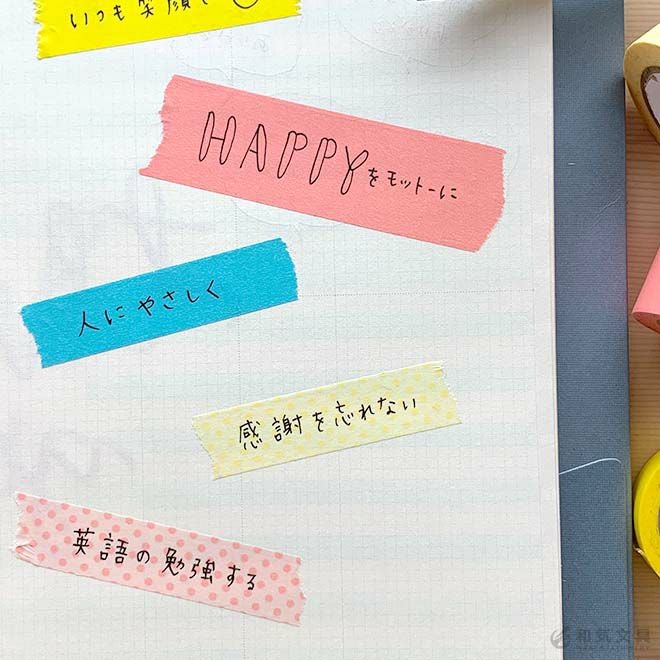 いつも笑顔で
HAPPYをモットーに
人にやさしく
感謝を忘れない
英語の勉強する
和気文具